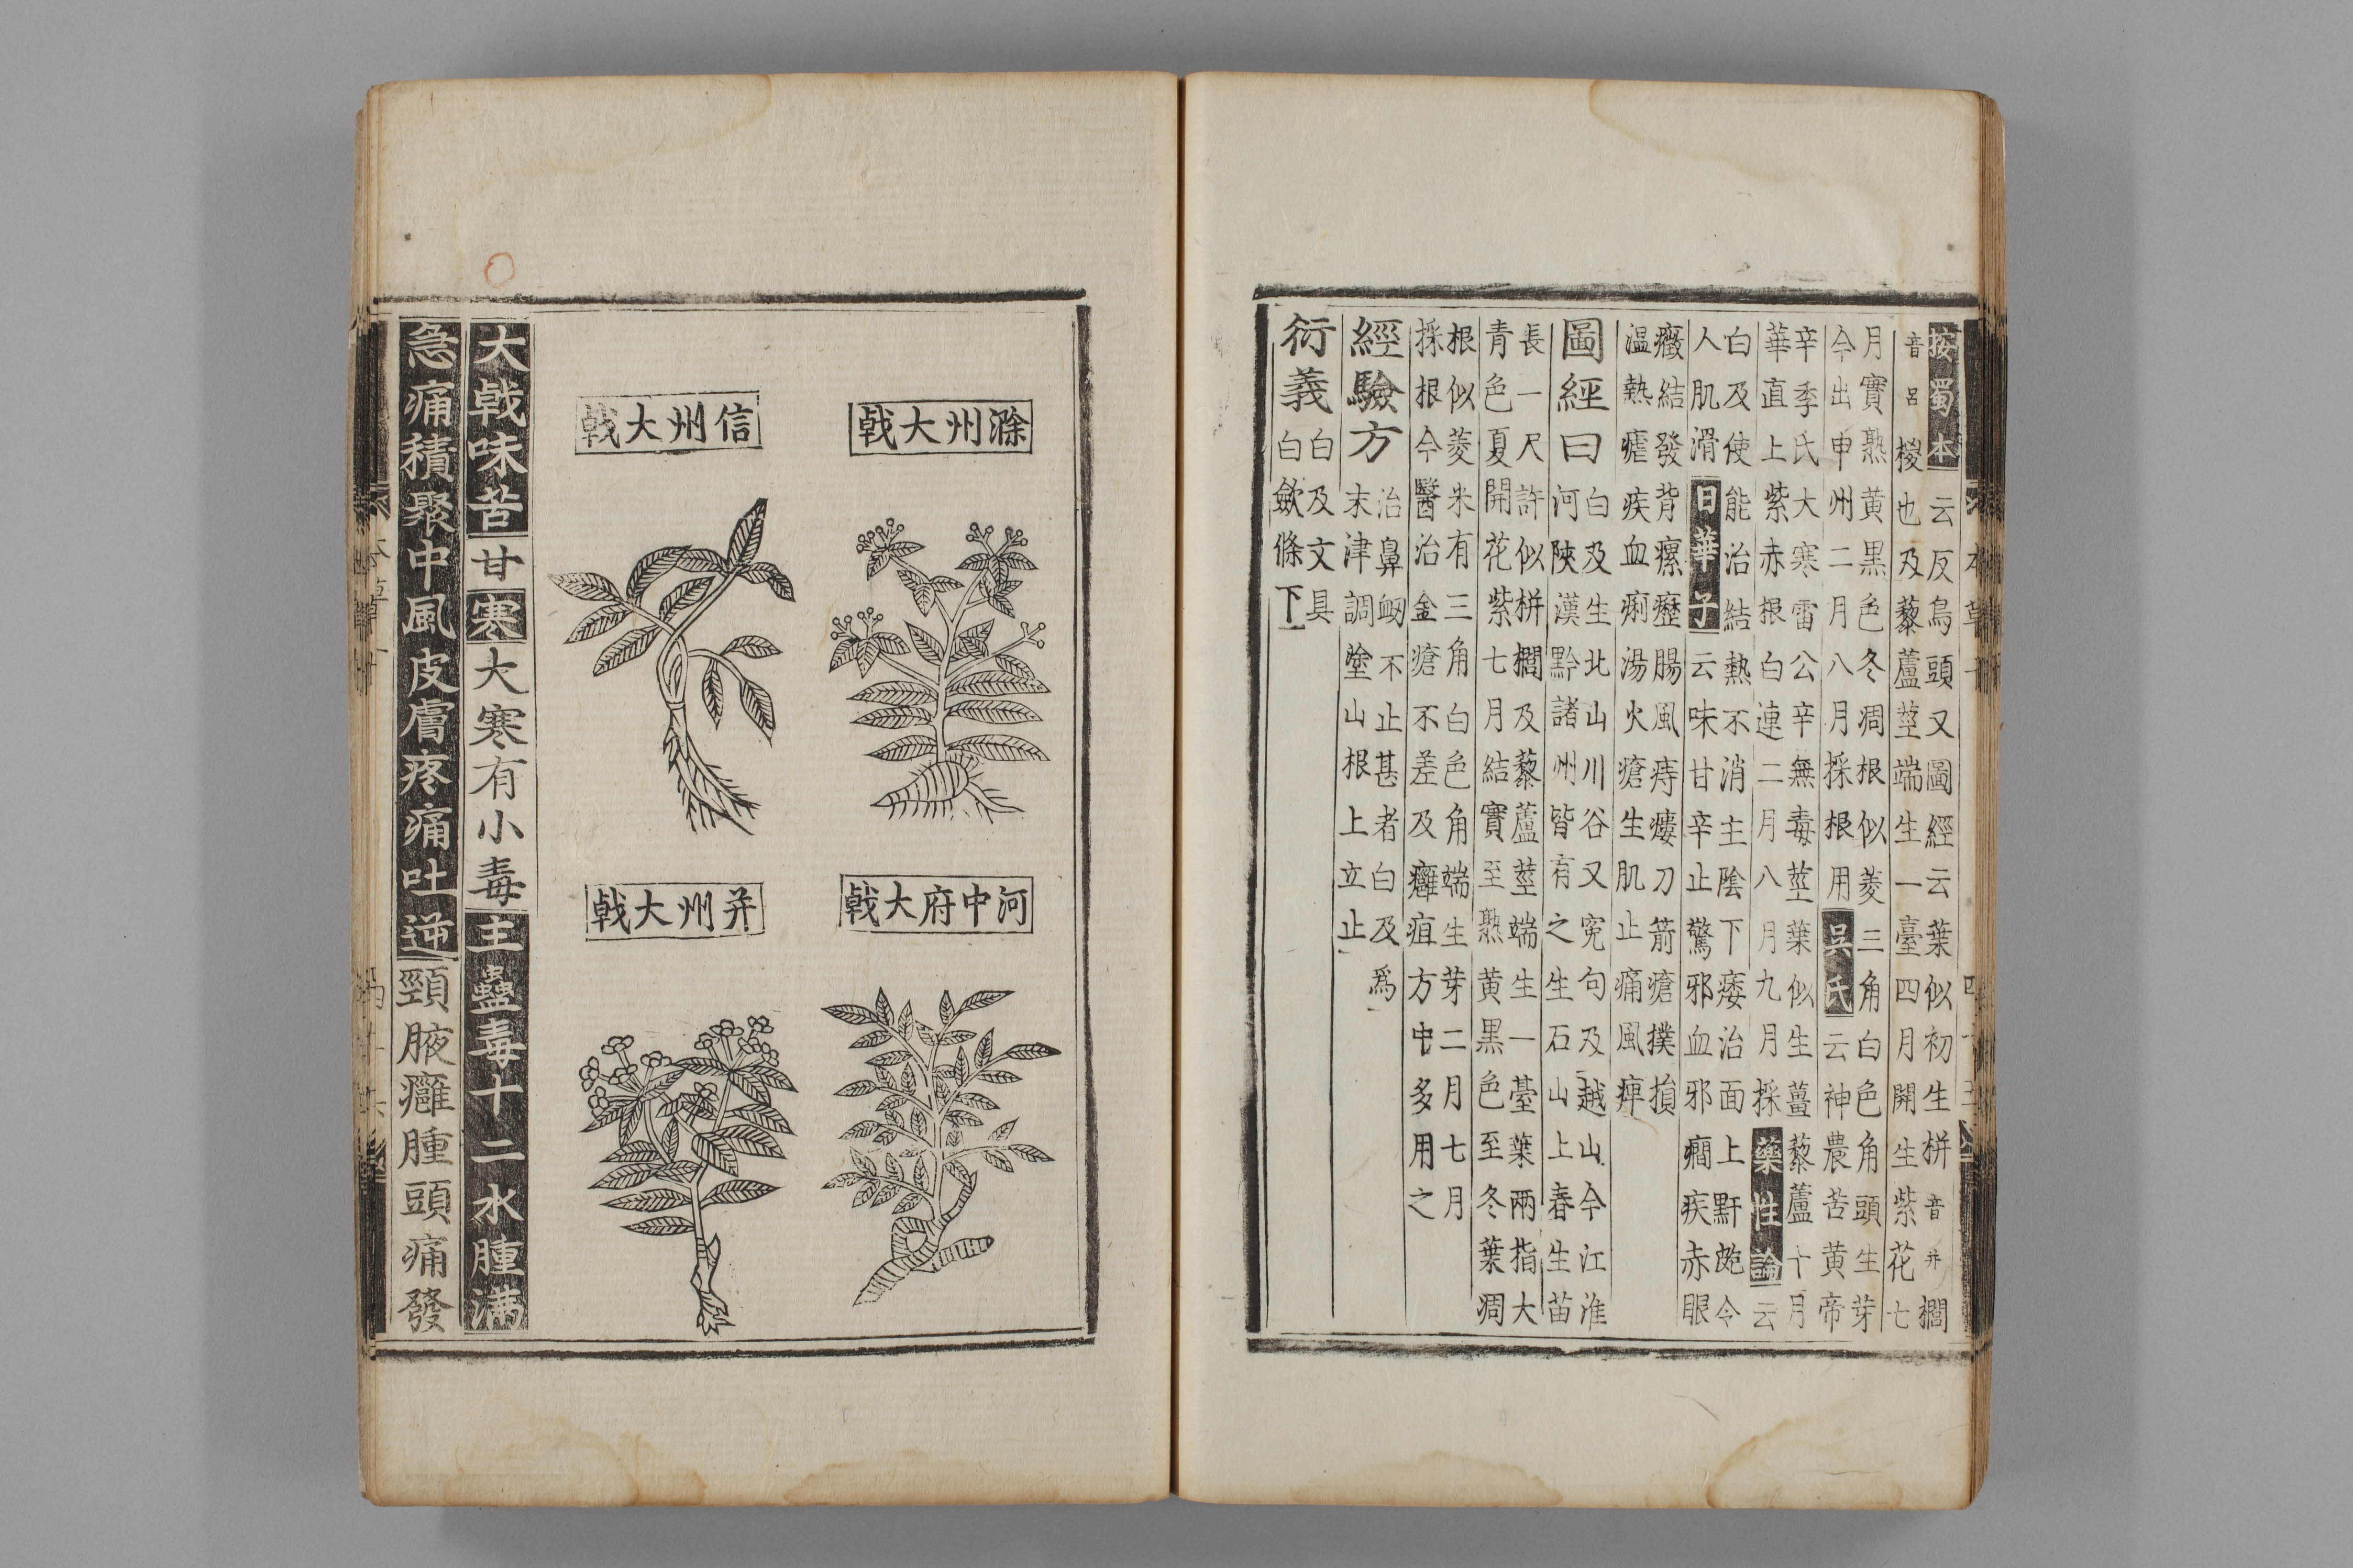 按蜀本云反烏頭又圖經云葉似初生栟音并櫚
音呂椶也及藜蘆莖端生一臺四月開生紫花七
月實熟黄黒色冬凋根似菱三角白色角頭生芽
今出申州二月八月採根用吳氏云神農苦黄帝
辛季氏大寒雷公辛無毒莖葉似生薑藜蘆十月
華直上紫赤根白連二月八月九月採藥性論云
白及使能治結熱不消主陰下痿治面上䵟皰令
人肌滑日華子云味甘辛止驚邪血邪癇疾赤眼
癥結發背瘰癧腸風痔瘻刀箭瘡撲損
温熱瘧疾血痢湯火瘡生肌止痛風痺
圖經曰白及生北山川谷又宛句及越山今江淮
河陝漢黔諸州皆有之生石山上春生苗
長一尺許似栟櫚及藜蘆莖端生一臺葉兩指大
青色夏開花紫七月結實至熟黄黒色至冬葉凋
根似菱米有三角白色角端生芽二月七月
採根今醫治金瘡不差及癰疽方中多用之
經驗方治鼻衂不止甚者白及爲
末津調塗山根上立止
衍義白及文具
白歛條下
滁州大戟
河中府大戟
信州大戟
并州大戟
大戟味苦甘寒大寒有小毒主蠱毒十二水腫滿
急痛積聚中風皮膚疼痛吐逆頸腋癰腫頭痛發